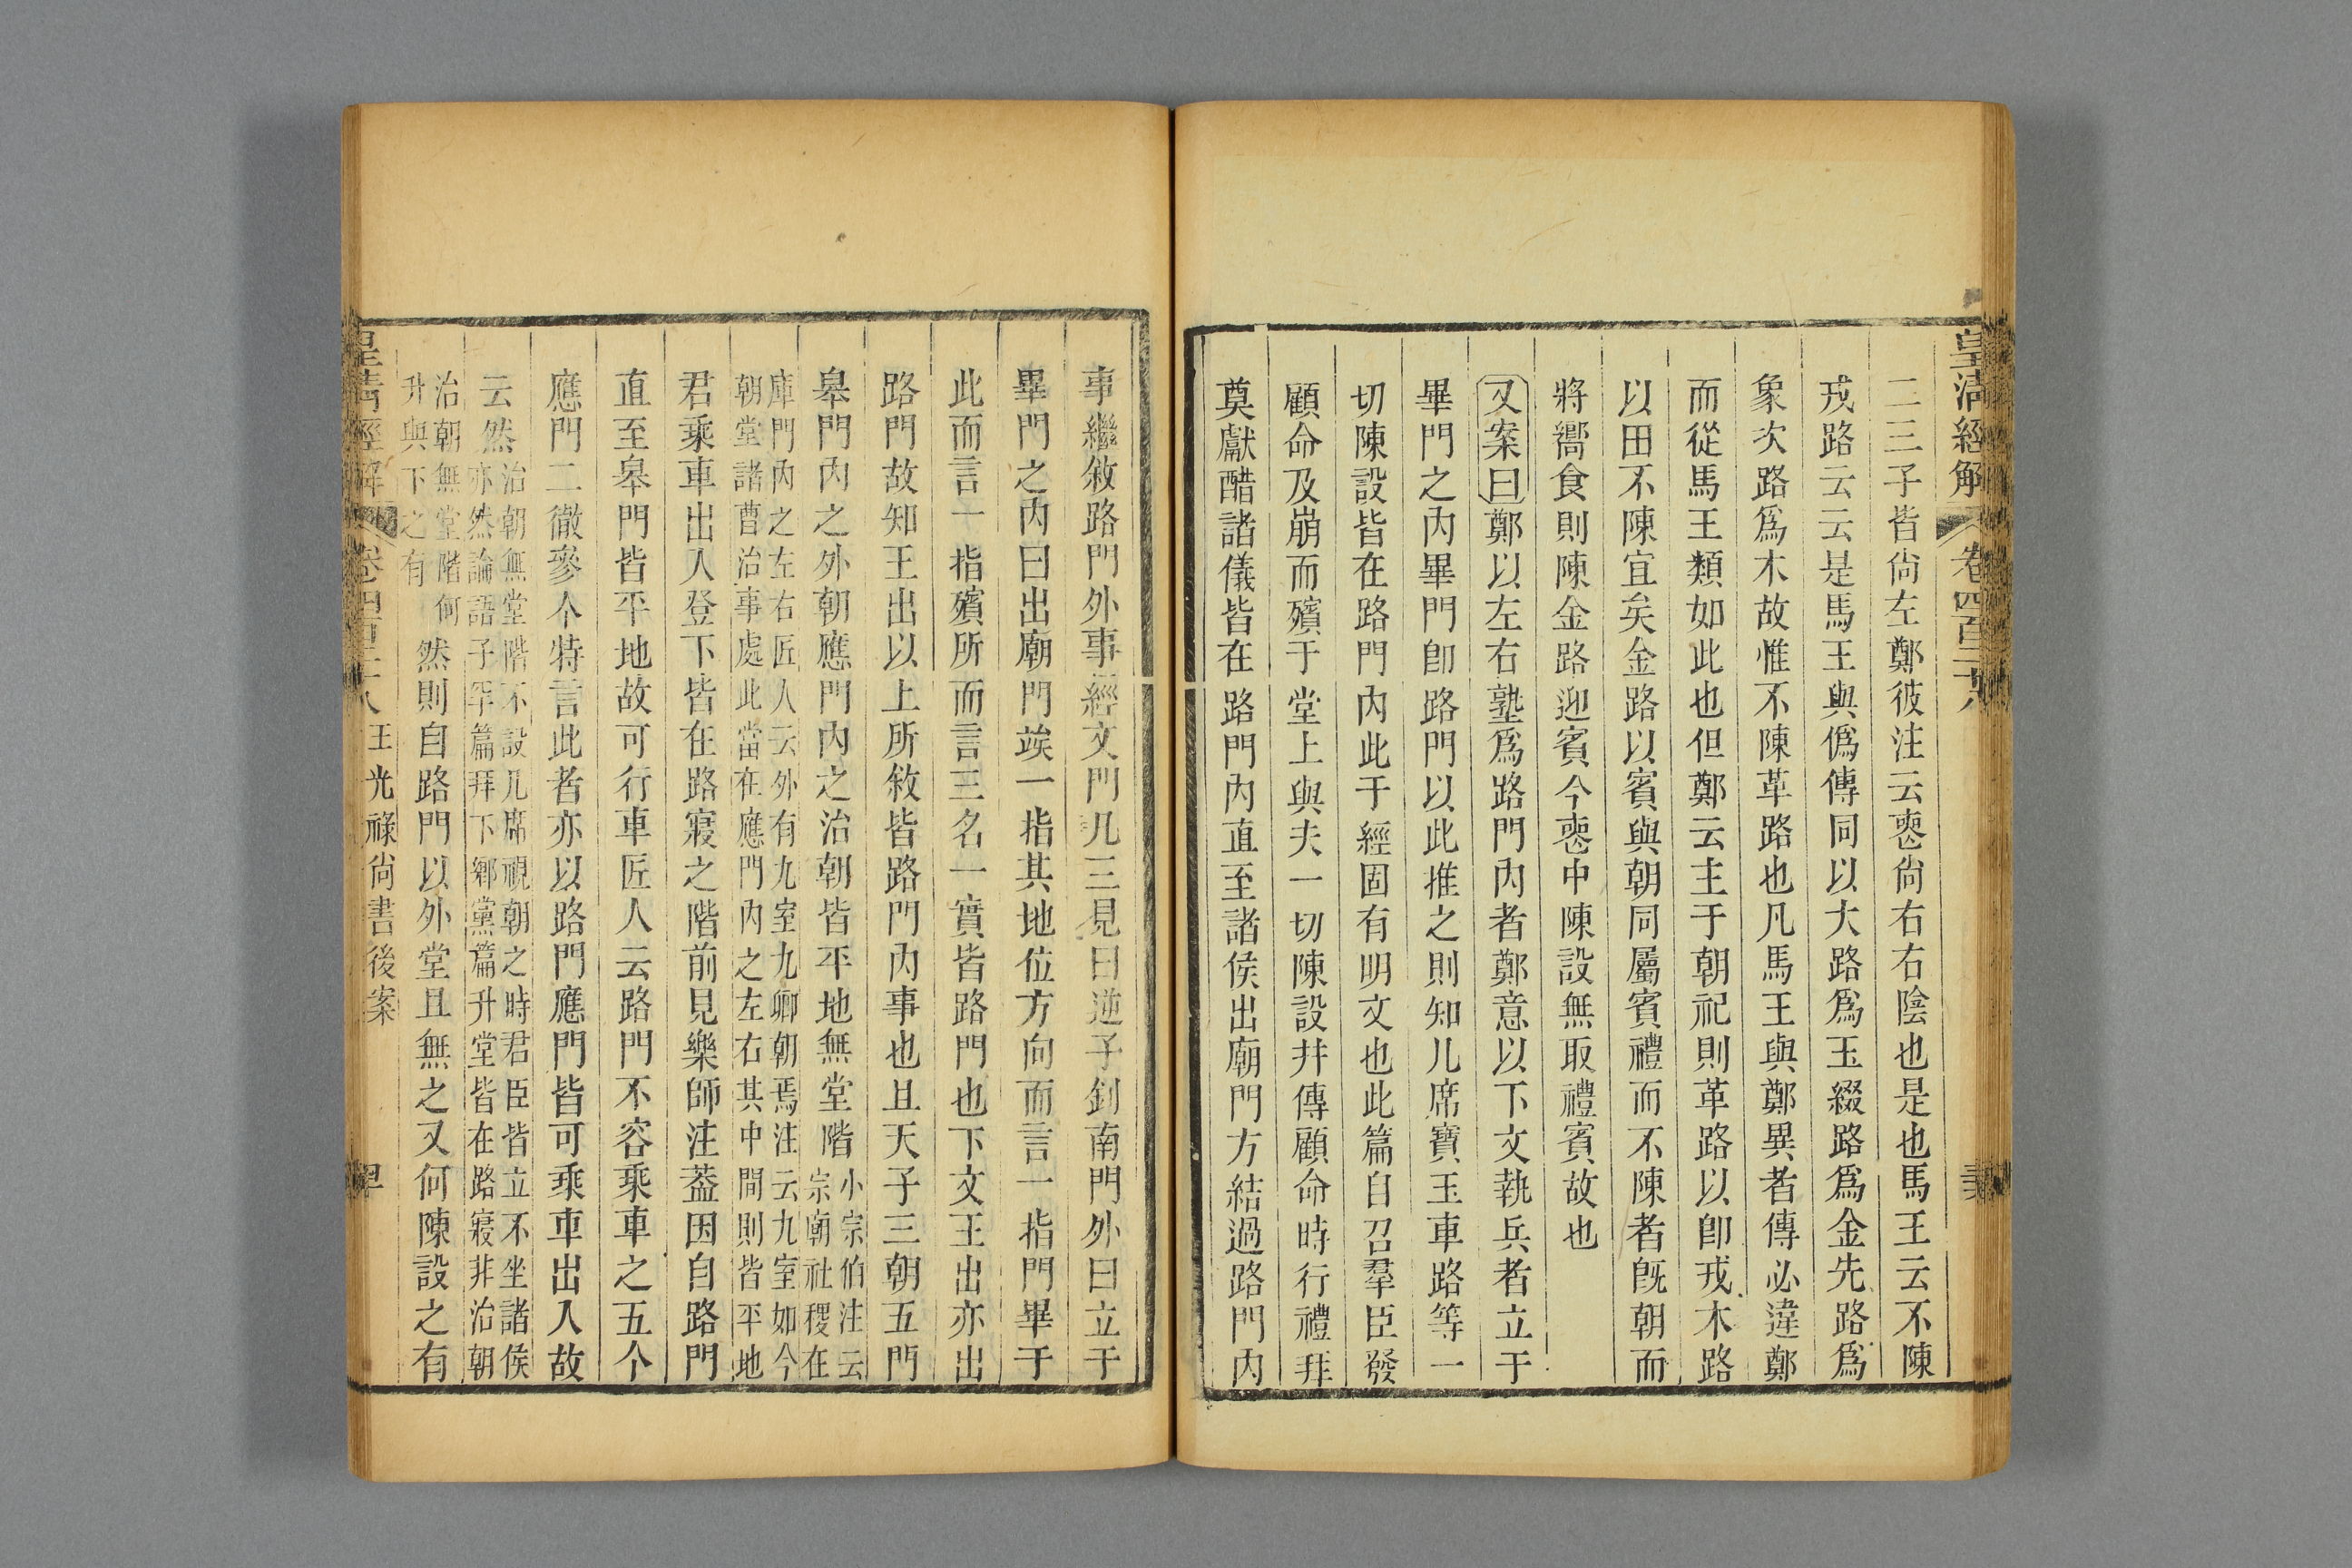 皇清經解 卷四百二十八
二三子皆尙左鄭彼注云䘮尙右右陰也是也馬王云不陳
戎路云云是馬王與僞傳同以大路爲玉綴路爲金先路爲
象次路爲木故惟不陳革路也凡馬王與鄭異者傳必違鄭
而從馬王類如此也但鄭云主于朝祀則革路以卽戎木路
以田不陳宜矣金路以賓與朝同屬賓禮而不陳者旣朝而
將嚮食則陳金路迎賓今䘮中陳設無取禮賓故也
又案曰鄭以左右塾爲路門內者鄭意以下文執兵者立于
畢門之內畢門卽路門以此推之則知几席寶玉車路等一
切陳設皆在路門內此于經固有明文也此篇自召羣臣發
顧命及崩而殯于堂上與夫一切陳設幷傳顧命時行禮拜
奠獻醋諸儀皆在路門內直至諸侯出廟門方結過路門內
事繼敘路門外事經文門凡三見曰逆子釗南門外曰立于
畢門之內曰出廟門竢一指其地位方向而言一指門畢于
此而言一指殯所而言三名一實皆路門也下文王出亦出
路門故知王出以上所敘皆路門內事也且天子三朝五門
皋門內之外朝應門內之治朝皆平地無堂階小宗伯注云宗廟社稷在
庫門內之左右匠人云外有九室九卿朝焉注云九室如今朝堂諸曹治事處此當在應門內之左右其中間則皆平地
君乘車出入登下皆在路寢之階前見樂師注蓋因自路門
直至皋門皆平地故可行車匠人云路門不容乘車之五个
應門二徹參个特言此者亦以路門應門皆可乘車出入故
云然治朝無堂階不設几席視朝之時君臣皆立不坐諸侯亦然論語子罕篇拜下鄉黨篇升堂皆在路寢非治朝
治朝無堂階何升與下之有然則自路門以外堂且無之又何陳設之有
皇清經解 卷四百二十八 王光祿尙書後案